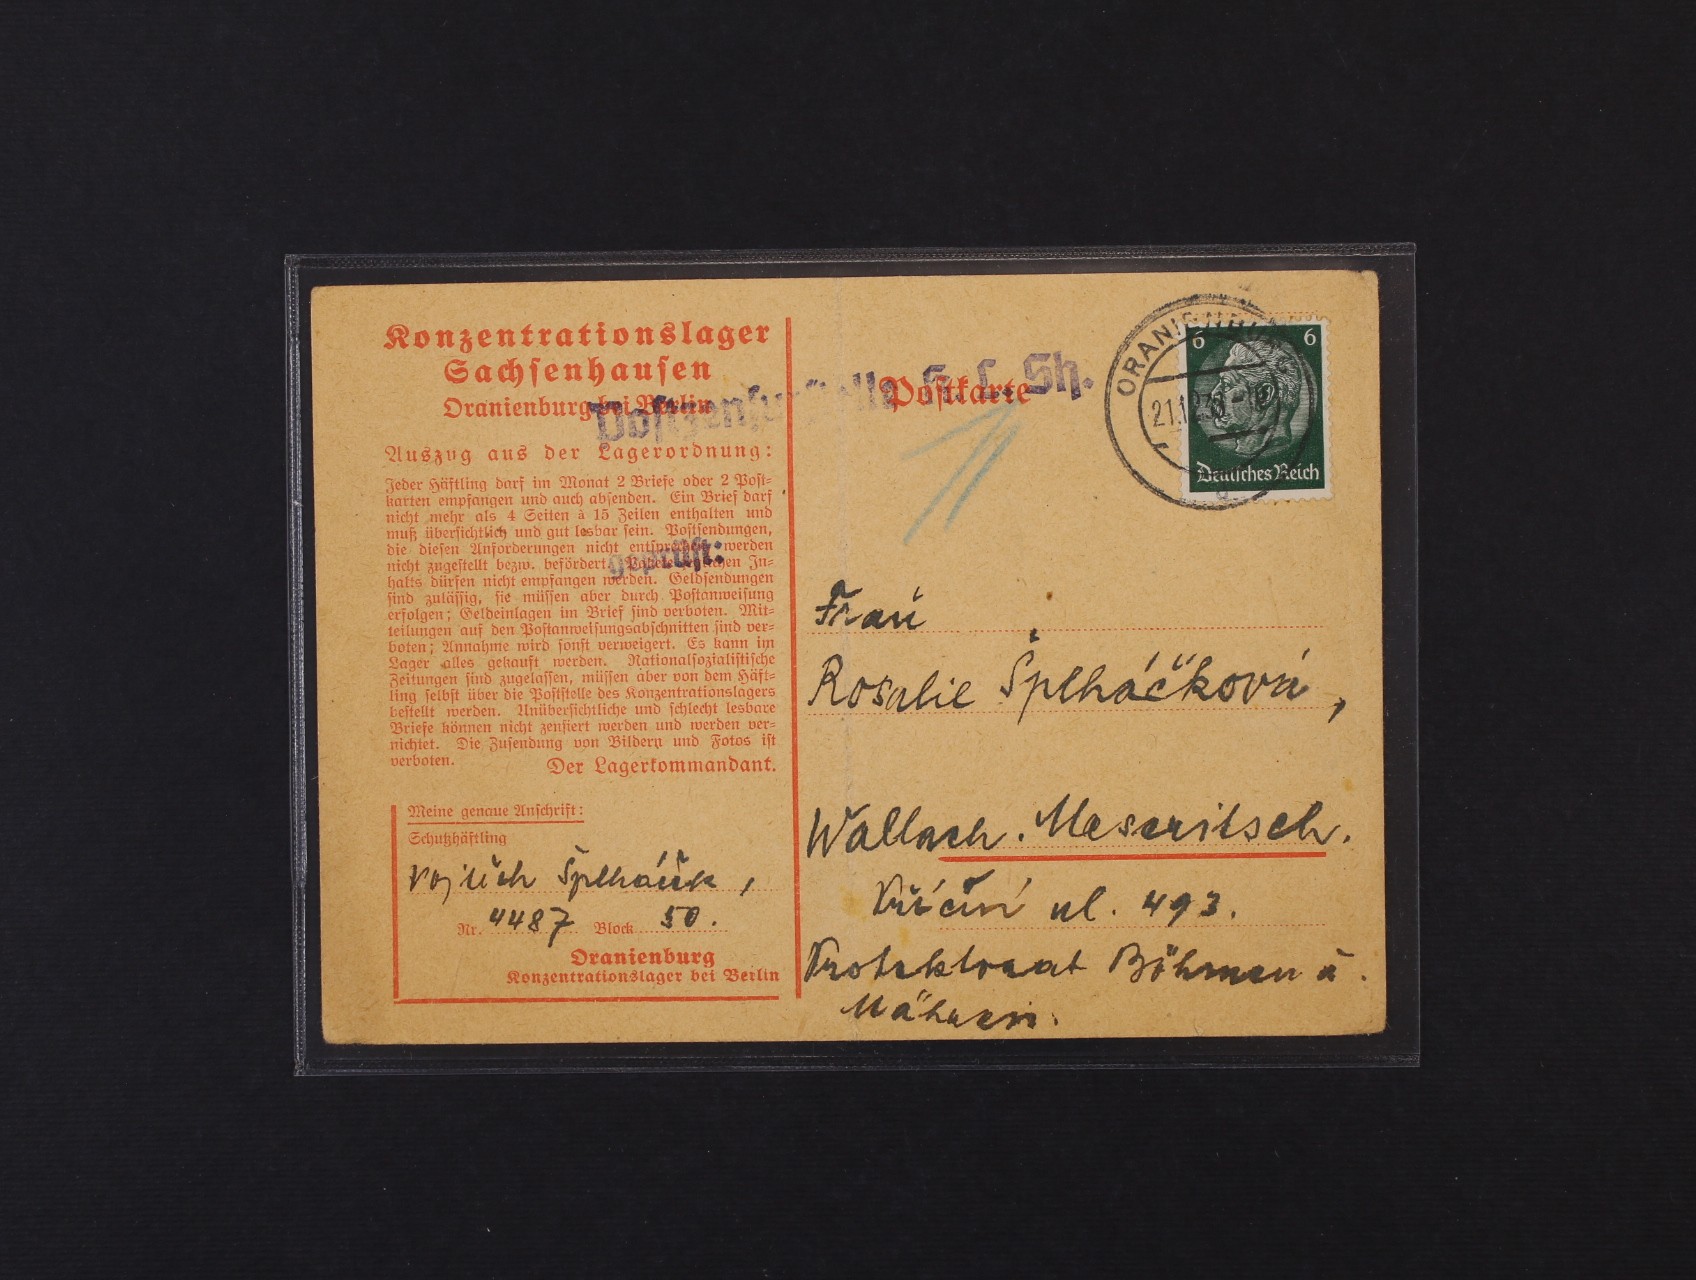 Konzentrationslager
Sachsenhausen
Oranienburg bei Berlin
Auszug aus der Lagerordnung:
Jeder Häftling darf im Monat 2 Briefe oder 2 Post-
karten empfangen und auch absenden. Ein Brief darf
nicht mehr als 4 Seiten à 15 Zeilen enthalten und
muß übersichtlich und gut lesbar sein. Postsendungen,
die diesen Anforderungen nicht entsprechen, werden
nicht zugestellt bezw. befördert. Pakete jeglichen In-
halts dürfen nicht empfangen werden. Geldsendungen
sind zulässig, sie müssen aber durch Postanweisung
erfolgen; Geldeinlagen im Brief sind verboten. Mit-
teilungen auf den Postanweisungsabschnitten sind ver-
boten; Annahme wird sonst verweigert. Es kann im
Lager alles gekauft werden. Nationalsozialistische
Zeitungen sind zugelassen, müssen aber von dem Häft-
ling selbst über die Poststelle des Konzentrationslagers
bestellt werden. Unübersichtliche und schlecht lesbare
Briefe können nicht zensiert werden und werden ver-
nichtet. Die Zusendung von Bildern und Fotos ist
verboten.
Der Lagerkommandant.
Meine genaue Anschrift:
Schutzhäftling
Vojtěch Šplháček,
Nr. 4487 Block 50.
Oranienburg
Konzentrationslager bei Berlin
Postzensurstelle K. L. Sh.
geprüft:
Postkarte
ORANIENBURG
6 6
Deutsches Reich
Frau
Rosalie Šplháčková,
Wallach. Meseritsch.
ul. 493.
Protektorat Böhmen u.
Mähren.